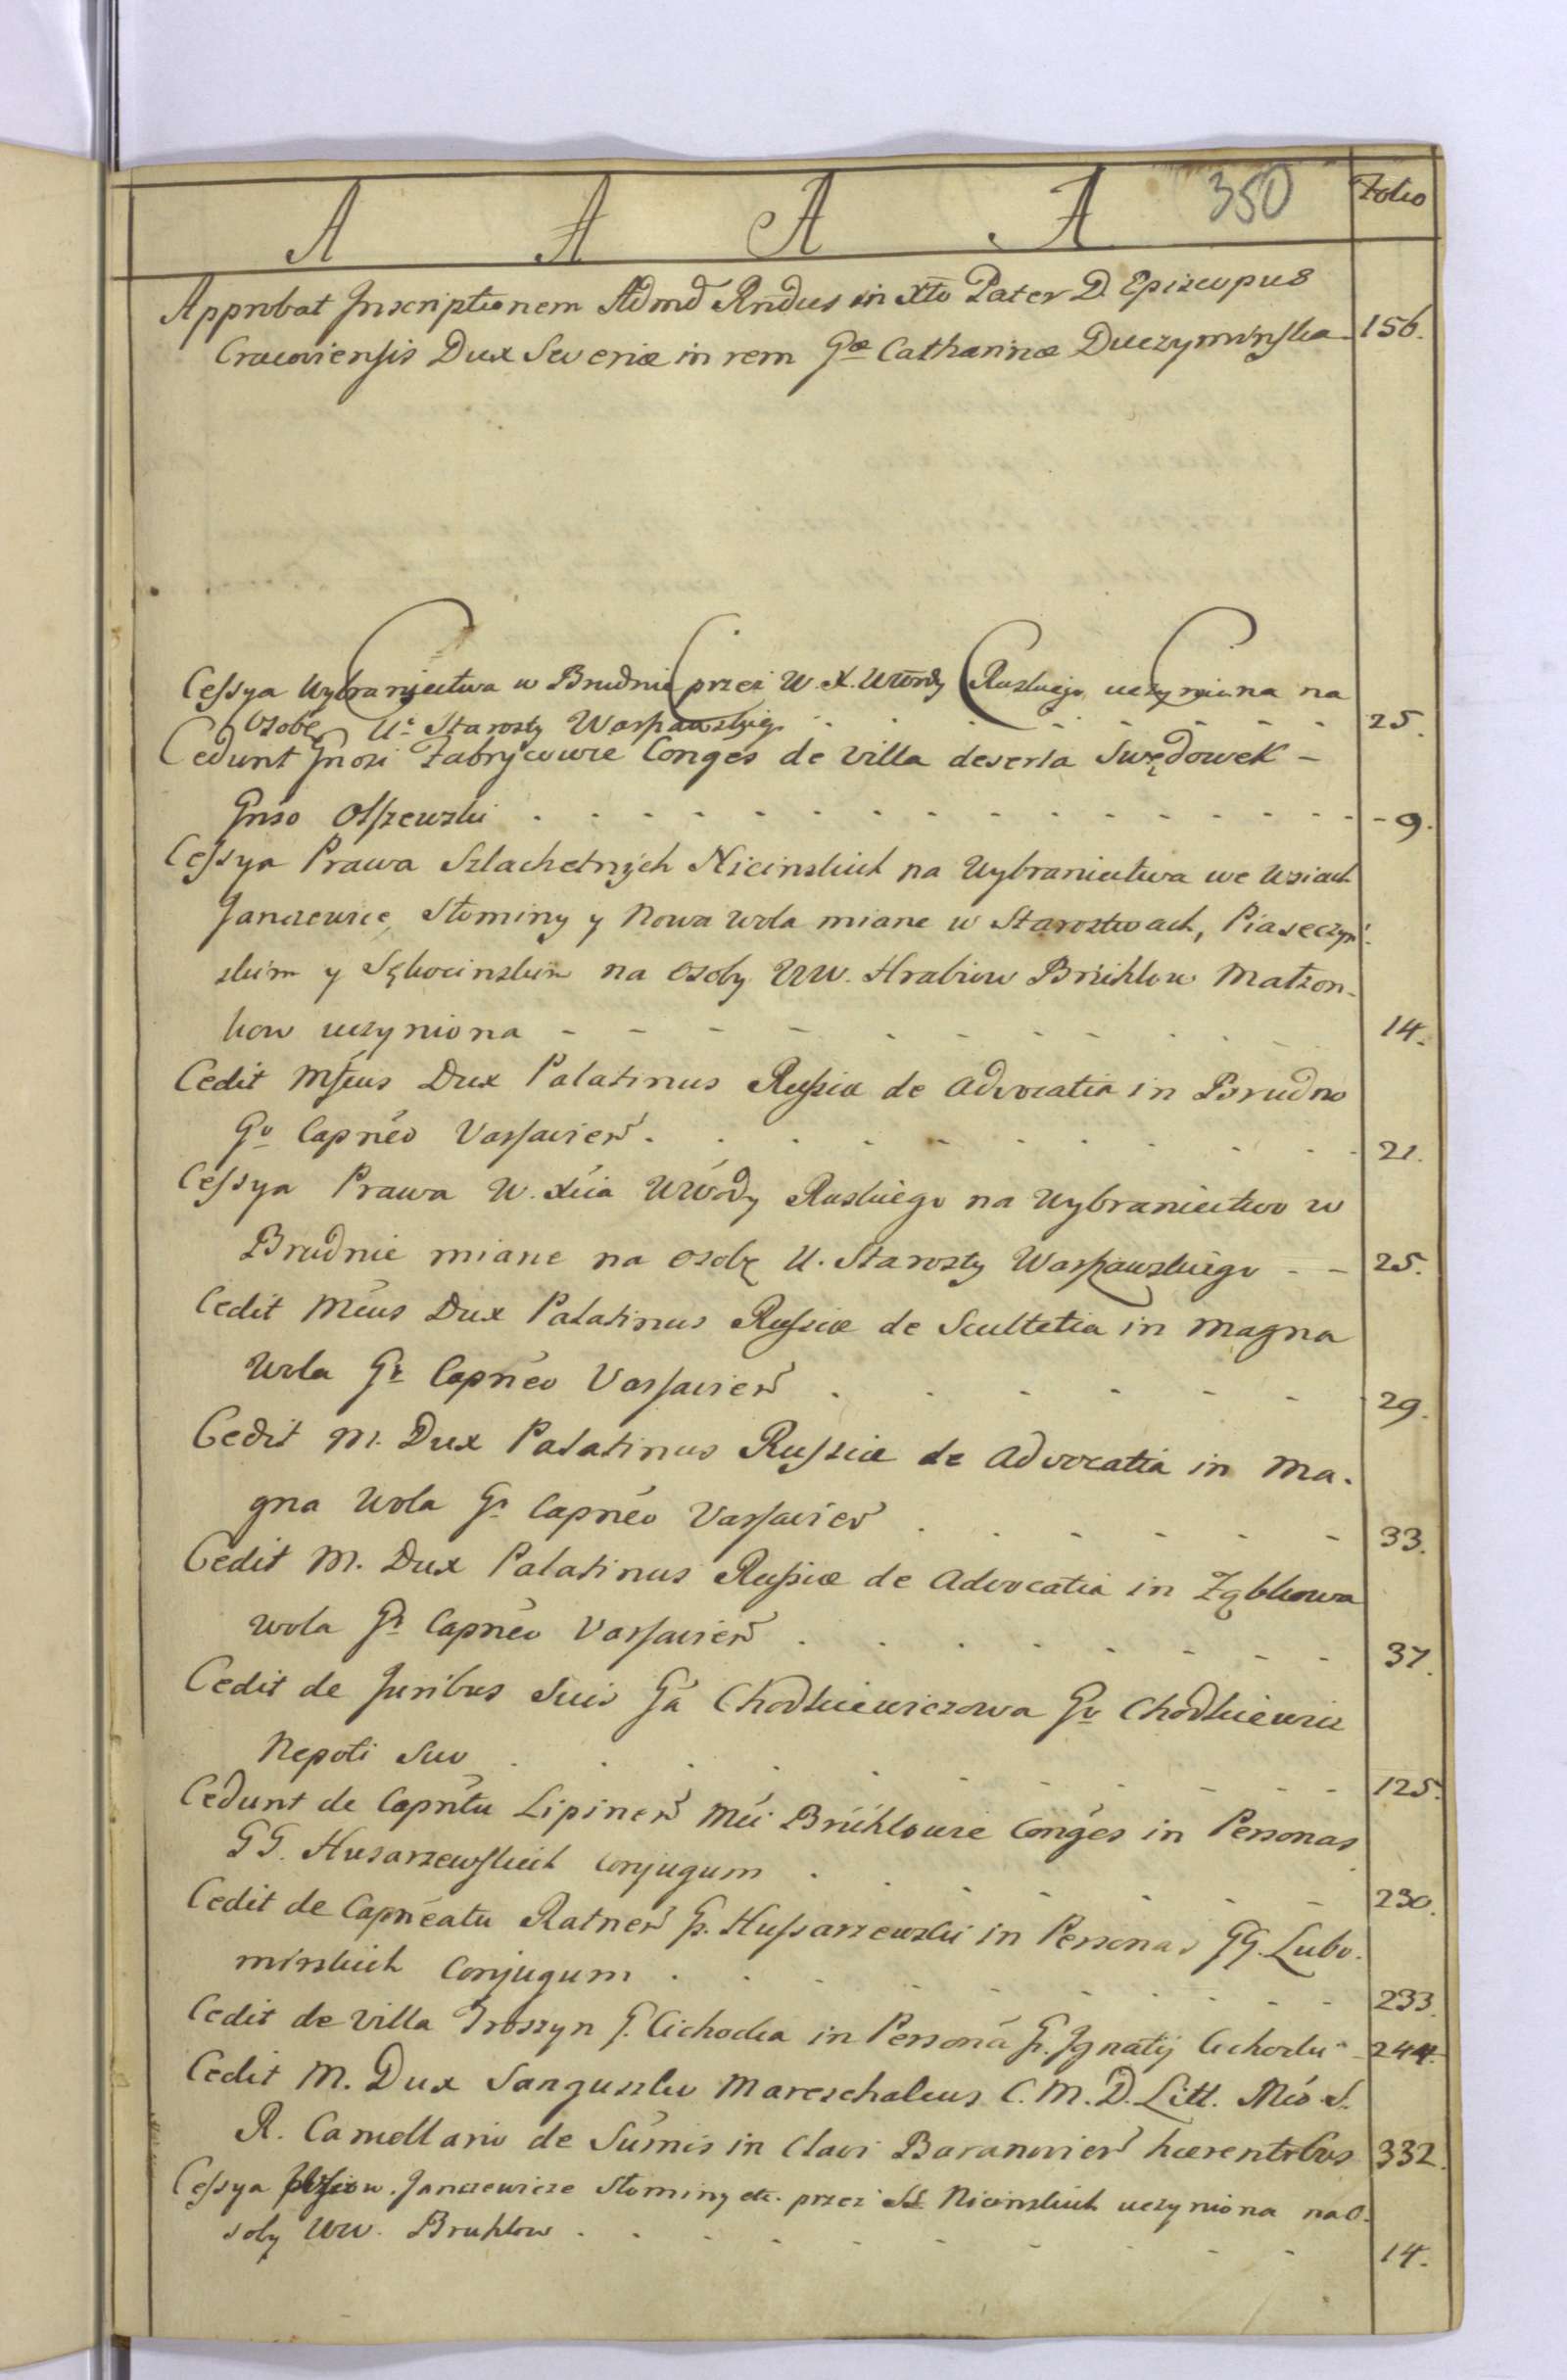 A A A A 350 Folio
Approbat Inscriptionem Admd Rndus in Xto Pater D. Episcopus
Cracoviensis Dux Severiæ in rem Gæ Catharinæ Duczyminska 156.
C C C C
Cessya Wybraniectwa w Brudnie przez W. X. Wwdy Ruskiego uczyniona na
Osobę U. Starosty Warszawskieg. 25.
Cedunt Gnosi Zabrycowie Conges de villa deserta Swędowek –
Gnso Olszewski - 9.
Cessya Prawa Szlachetnych Nicinskich na Wybraniectwa we Wsiach
Janczewice, Słominy y Nowa Wola miane w Starostwach, Piaseczyń-
skim y Sękocinskim na Osoby WW. Hrabiow Brühlow Małżon-
kow uczyniona 14.
Cedit Mfcus Dux Palatinus Russiæ de Advocatia in Brudno
Go Capnéo Varsavień. 21.
Cessya Prawa W. Xcia Wwody Ruskiego na Wybraniectwo w
Brudnie miane na Osobę U. Starosty Warszawskiego - - 25.
Cedit Mcus Dux Palatinus Russiæ de Scultetia in Magna
Wola Go Capnéo Varsavień 29.
Cedit M. Dux Palatinus Russiæ de Advocatia in Ma-
gna Wola Go Capnéo Varsavień 33.
Cedit M. Dux Palatinus Russiæ de Advocatia in Ząbkowa
Wola Go Capnéo Varsavień 37.
Cedit de Juribus suis Ga Chodkiewiczowa Go Chodkiewicz
Nepoti Suo 125.
Cedunt de Capntu Lipineń Mci Brühlowie Conges in Personas
GG. Husarzewskich Conjugum 230.
Cedit de Capneatu Ratneń G. Hussarzewski in Personas GG. Lubo-
mirskich Conjugum 233.
Cedit de Villa Troszyn G. Cichocka in Persona G. Ignatij Cichocki 244.
Cedit M. Dux Sanguszko Mareschalcus C. M. D. Litt. Mco S.
R. Camellario de Sumis in Clavi Baranovień hærentibus 332.
Cessya Wsiow. Janczewicze Słominy etc. przez SS. Nicinskich uczyniona na O-
soby WW. Bruhlow 14.